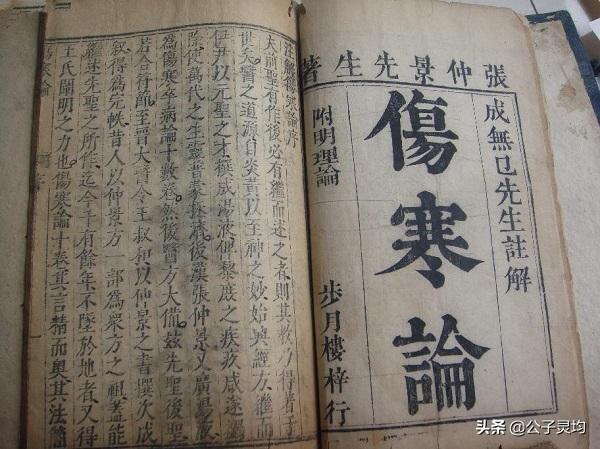 張仲景先生著
成無已先生註解
傷寒論
附明理論
步月樓梓行
註解傷寒論序
夫前聖有作後必有繼而述之者則其教乃得著于
世矣醫之道源自炎黃以至神之妙始興經方繼而
伊尹以元聖之才撰成湯液俾黎庶之疾疢咸遂蠲
除使萬代之生靈普蒙拯濟後漢張仲景又廣湯液
為傷寒卒病論十數卷然後醫方大備茲先聖後聖
若合符節至晉太醫令王叔和以仲景之書撰次成
敘得為完帙昔人以仲景方一部為眾方之祖蓋能
繼述先聖之所作迄今千有餘年不墜於地者又得
王氏闡明之力也傷寒論十卷其言精而奧其法簡
頭条 @公子灵均